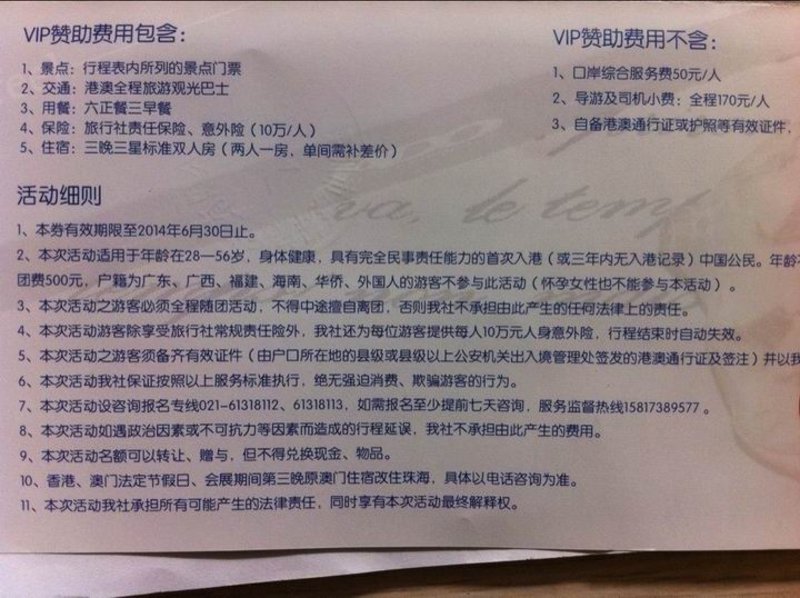 VIP赞助费用包含：
1、景点：行程表内所列的景点门票
2、交通：港澳全程旅游观光巴士
3、用餐：六正餐三早餐
4、保险：旅行社责任保险、意外险（10万/人）
5、住宿：三晚三星标准双人房（两人一房，单间需补差价）
VIP赞助费用不含：
1、口岸综合服务费50元/人
2、导游及司机小费：全程170元/人
3、自备港澳通行证或护照等有效证件，
活动细则
1、本券有效期限至2014年6月30日止。
2、本次活动适用于年龄在28—56岁，身体健康，具有完全民事责任能力的首次入港（或三年内无入港记录）中国公民。年龄
团费500元，户籍为广东、广西、福建、海南、华侨、外国人的游客不参与此活动（怀孕女性也不能参与本活动）。
3、本次活动之游客必须全程随团活动，不得中途擅自离团，否则我社不承担由此产生的任何法律上的责任。
4、本次活动游客除享受旅行社常规责任险外，我社还为每位游客提供每人10万元人身意外险，行程结束时自动失效。
5、本次活动之游客须备齐有效证件（由户口所在地的县级或县级以上公安机关出入境管理处签发的港澳通行证及签注）并以我
6、本次活动我社保证按照以上服务标准执行，绝无强迫消费、欺骗游客的行为。
7、本次活动设咨询报名专线021-61318112、61318113，如需报名至少提前七天咨询，服务监督热线15817389577 。
8、本次活动如遇政治因素或不可抗力等因素而造成的行程延误，我社不承担由此产生的费用。
9、本次活动名额可以转让、赠与，但不得兑换现金、物品。
10、香港、澳门法定节假日、会展期间第三晚原澳门住宿改住珠海，具体以电话咨询为准。
11、本次活动我社承担所有可能产生的法律责任，同时享有本次活动最终解释权。
va, le temp